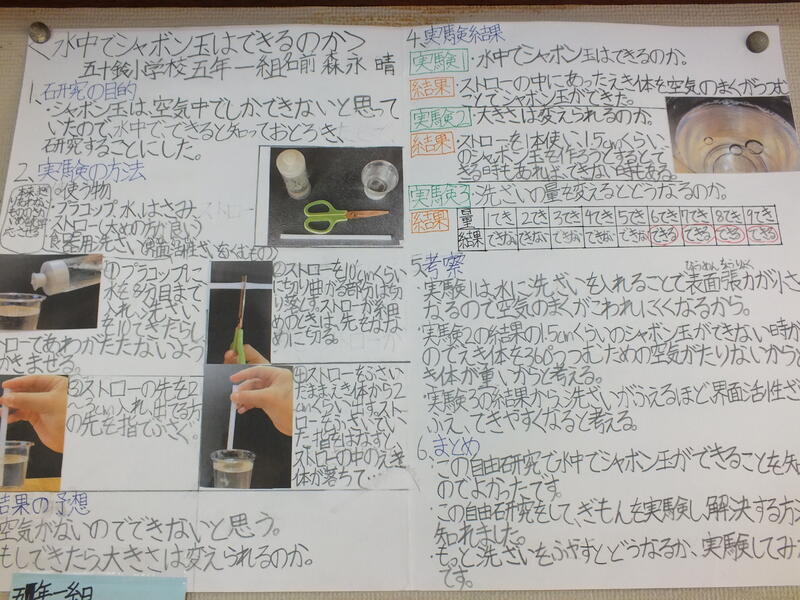 <水中でシャボン玉はできるのか>
五十鈴小学校五年一組名前 森永 晴
1.研究の目的
・シャボン玉は、空気中でしかできないと思って
いたので、水中でできると知っておどろき、
研究することにした。
2.実験の方法
◎使う物
・プラコップ、水、はさみ、
ストロー(太めの方が良い)
食器用洗ざい(界面活性ざいをふくむもの)
①プラコップに
水を8分目まで
入れ、洗ざい
を10てきたらし
ストローであわがたたないよう
かきませる。
②ストローを10cmくらい
に切り、曲がる部分は切
り落とす。ストローが細
めのときは、先をなな
めに切る。
③ストローの先を2
~3cm入れ、出てる方
の先を指でふさぐ。
④ストローをふさい
だままえき体から2
cmくらい出す。スト
ローをふさいでい
た指をはなすと
ストローの中のえき
体が落ちて…
結果の予想
空気がないのでできないと思う。
もしできたら大きさは変えられるのか。
五年一組
4.実験結果
実験1:水中でシャボン玉はできるのか。
結果:ストローの中にあったえき体を空気のまくがつつむ
ことでシャボン玉ができた。
実験2:大きさは変えられるのか。
結果:ストローを1本使い、1.5cmくらい
のシャボン玉を作ろうとするとで
きる時もあれば、できない時もある。
実験3:洗ざいの量を変えるとどうなるのか。
結果: 量 1てき 2てき 3てき 4てき 5てき 6てき 7てき 8てき 9てき
結果 できない できない できない できない できない できる できる できる できる
5.考察
・実験1は、水に洗ざいを入れることで表面張力が小さ
なるので空気のまくがこわれにくくなるから。
・実験2の結果の1.5cmくらいのシャボン玉ができない時が
のでえき体を360°つつむための空気がたりないからと
き体が重いからと考える。
・実験3の結果から洗ざいがふえるほど界面活性ざ
ふえ、できやすくなると考える。
6.まとめ
・この自由研究で水中でシャボン玉ができることを知
のでよかったです。
・この自由研究をして、ぎもんを実験し、解決する方
知れました。
・もっと洗ざいをふやすとどうなるか、実験してみ
です。